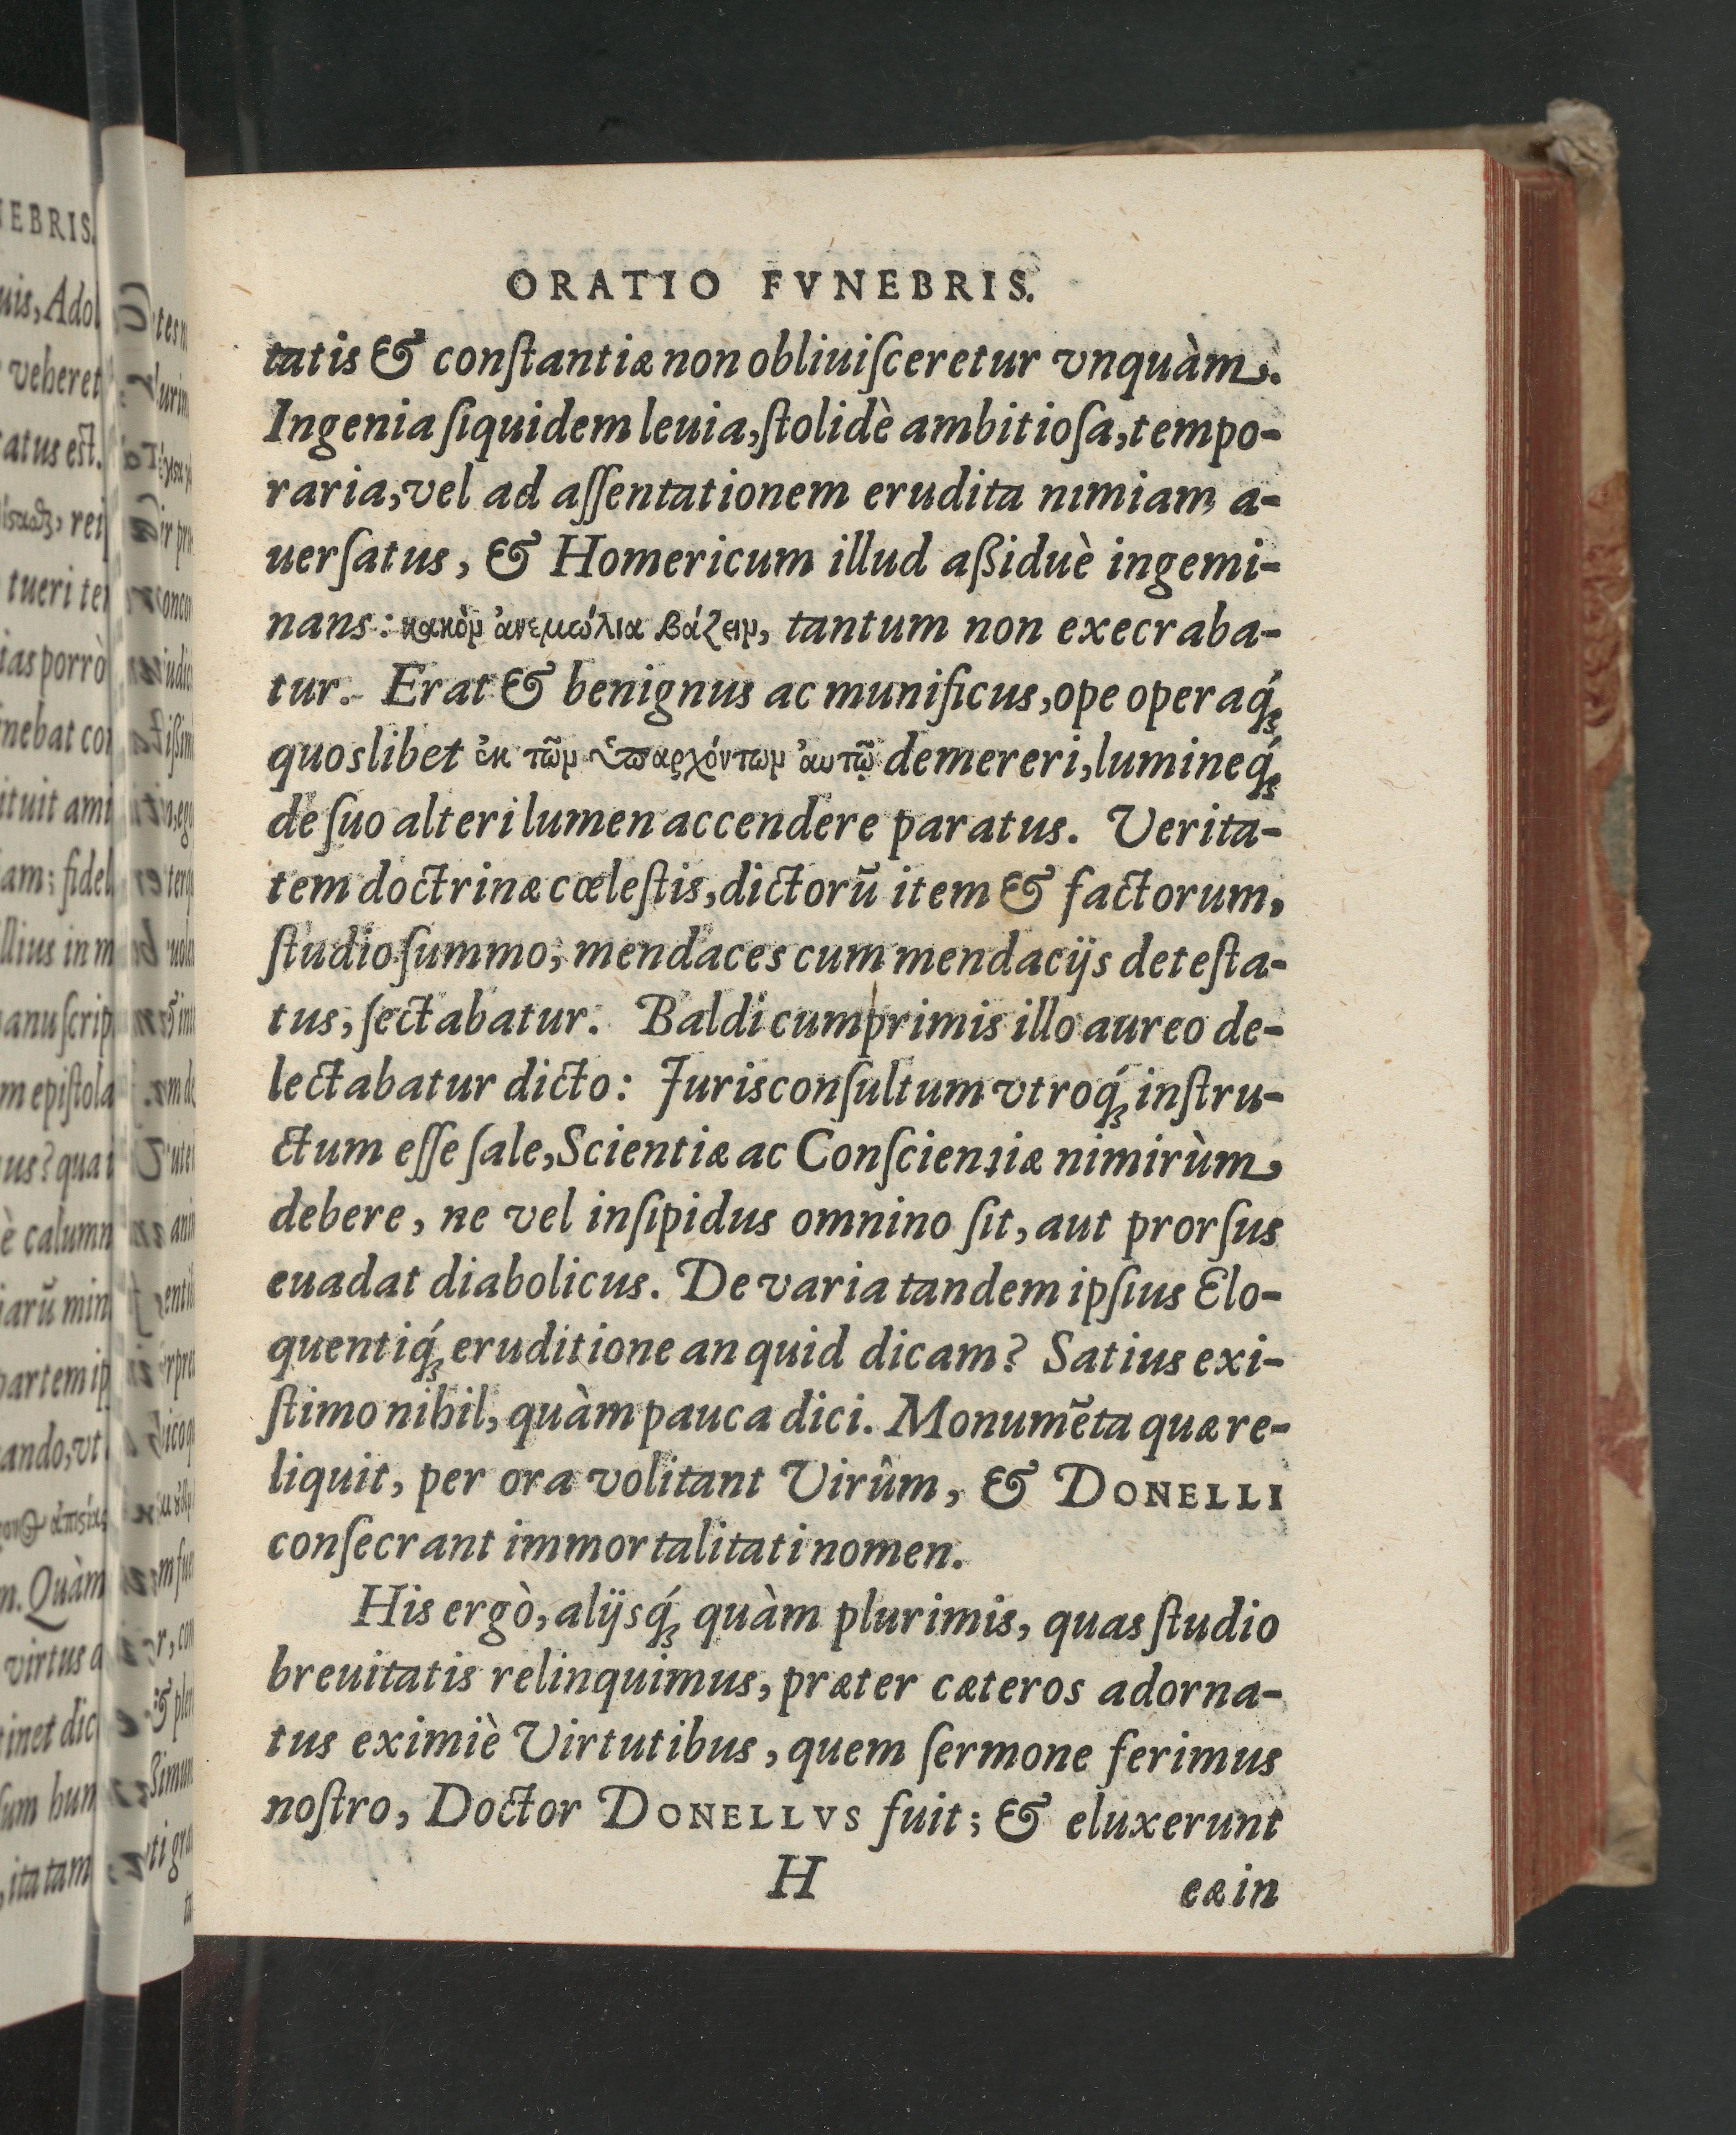 ORATIO FVNEBRIS.
tatis & conſtantiæ non obliuiſceretur vnquàm.
Ingenia ſiquidem leuia, ſtolidè ambitioſa, tempo-
raria, vel ad aſſentationem erudita nimiam a-
uerſatus, & Homericum illud aßiduè ingemi-
nans: κακὸν ἀνεμώλια βάζειν, tantum non execraba-
tur. Erat & benignus ac munificus, ope operaq́ꝫ
quoslibet ἐκ τῶν ὑπαρχόντων ἀυτῷ demereri, lumineq́ꝫ
de ſuo alteri lumen accendere paratus. Verita-
tem doctrinæ cœleſtis, dictorũ item & factorum,
ſtudio ſummo; mendaces cum mendacijs deteſta-
tus, ſectabatur. Baldi cumprimis illo aureo de-
lectabatur dicto: Jurisconſultum vtroq́ꝫ inſtru-
ctum eſſe ſale, Scientiæ ac Conſcientiæ nimirùm,
debere, ne vel inſipidus omnino ſit, aut prorſus
euadat diabolicus. De varia tandem ipſius Elo-
quentiq́ꝫ eruditione an quid dicam? Satius exi-
ſtimo nihil, quàm pauca dici. Monumẽta quæ re-
liquit, per ora volitant Virûm, & DONELLI
conſecrant immortalitati nomen.
His ergò, alijsq́ꝫ quàm plurimis, quas ſtudio
breuitatis relinquimus, præter cæteros adorna-
tus eximiè Virtutibus, quem ſermone ferimus
noſtro, Doctor DONELLVS fuit; & eluxerunt
H
eæ in